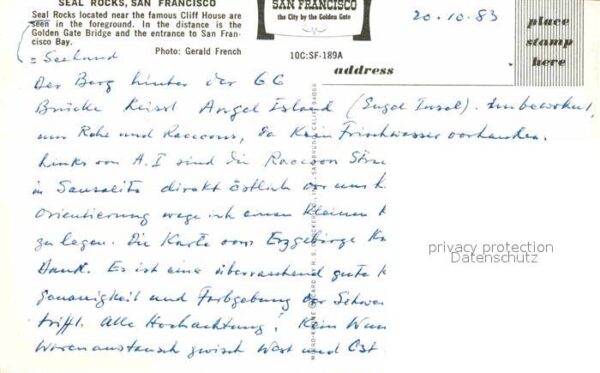 SEAL ROCKS, SAN FRANCISCO
Seal Rocks located near the famous Cliff House are
seen in the foreground. In the distance is the
Golden Gate Bridge and the entrance to San Fran-
cisco Bay.
Photo: Gerald French
SAN FRANCISCO
the City by the Golden Gate
10C:SF-189A
20.10.83
place
stamp
here
address
= Seehund
Der Berg hinter der GG
Brücke heisst Angel Island (Engel Insel). Unbewohnt,
nur Rehe und Raccoons, da kein Frischwasser vorhanden.
Links von A.I sind die Raccoon
in Sausalito direkt östlich vor uns
Orientierung wage ich einen kleinen
zu legen. Die Karte vom Erzgebirge
Dank. Es ist eine überraschend gute
genauigkeit und Farbgebung der
trifft. Alle Hochachtung! Kein
Warenaustausch zwisch West und Ost
privacy protection
Datenschutz